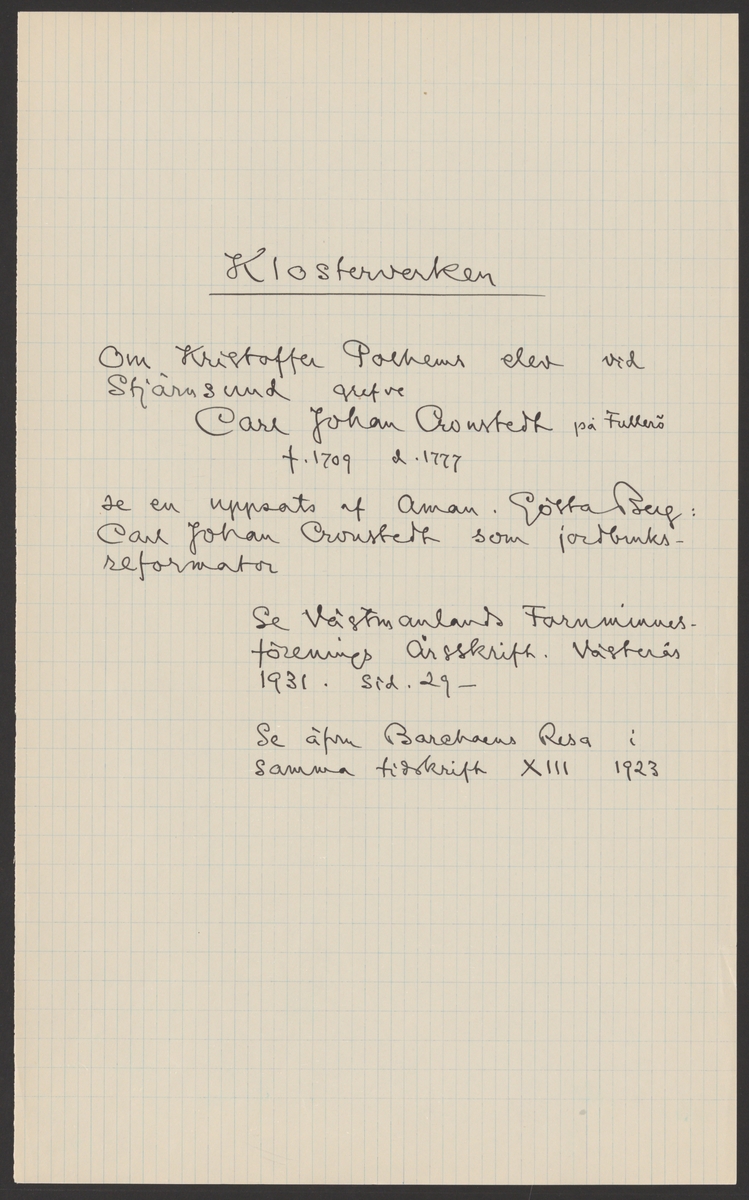 Klosterverken
Om Kristoffer Polhems elev vid
Stjärnsund grefve
Carl Johan Cronstedt på Fullerö
f. 1709 d. 1777
se en uppsats af Aman. Gösta Berg:
Carl Johan Cronstedt som jordbruks-
reformator
Se Västmanlands Fornminnes-
förenings Årsskrift. Västerås
1931. Sid. 29 —
Se äfven Barchaeus Resa i
samma tidskrift XIII 1923